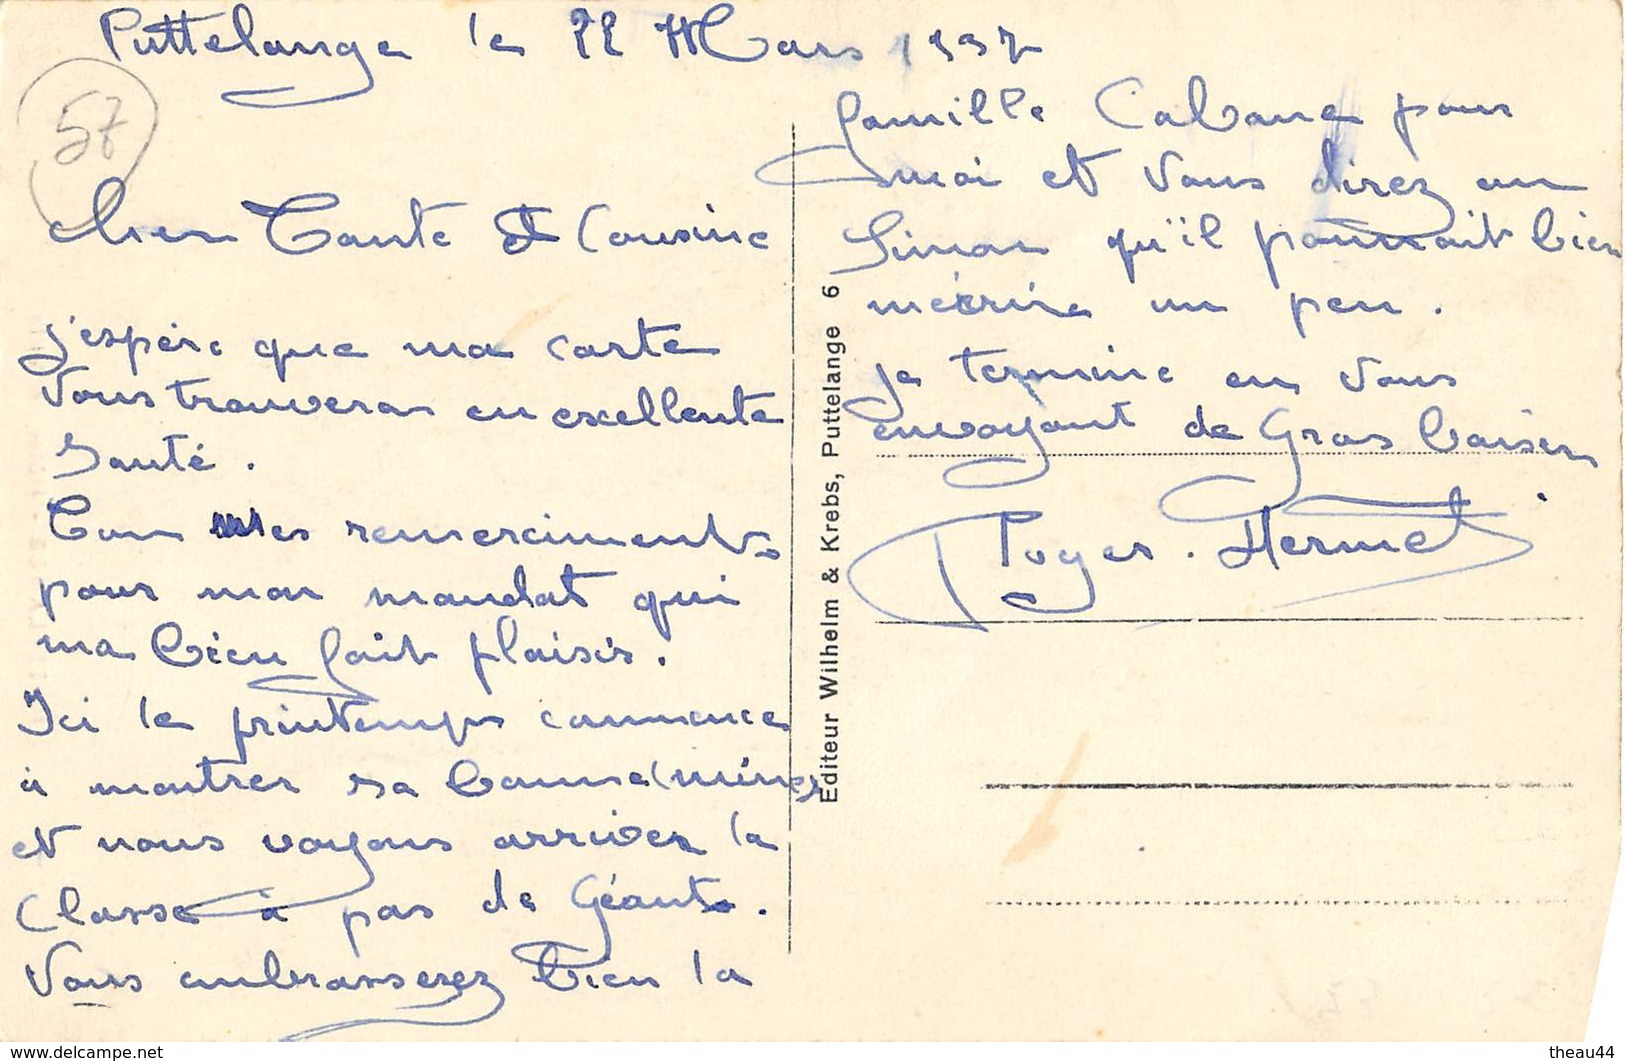 Puttelange le 22 Mars 1937
57
Cher Tante et Cousine
j'espère que ma carte
Vous trouveras en excellente
santé.
Tous mes remerciments
pour mon mandat qui
ma bien fait plaisir.
Ici le printemps commence
à montrer sa bonne mine
et nous voyons arriver la
Classe à pas de Géants.
Vous embrasserez bien la
famille Cabane pour
moi et Vous direz au
Simon qu'il pourrait bien
mécrire un peu.
je termine en Vous
envoyant de Gros baiser
Roger. Hermet
Editeur Wilhelm & Krebs, Puttelange 6
www.delcampe.net
theau44